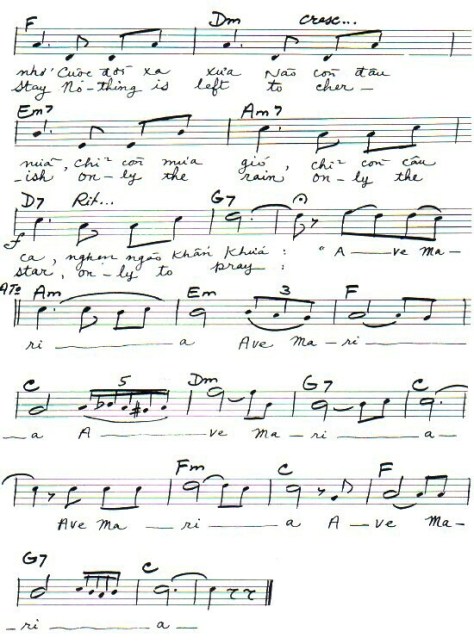 F Dm cresc...
nhớ Cuộc đời xa xưa Nào còn đâu
stay No-thing is left to cher-
Em7 Am7
nữa, chỉ còn mưa gió, chỉ còn câu
-ish on-ly the rain on-ly the
D7 Rit... G7
ca, nghẹn ngào khấn khứa : "A—ve Ma-
star, on-ly to pray :
A To Am Em 3 F
ri — a Ave Ma-ri —
C 5 Dm G7 C
— a A — ve Ma-ri — a-
Fm C F
Ave Ma — ri — a A-ve Ma-
G7 C
-ri — a —